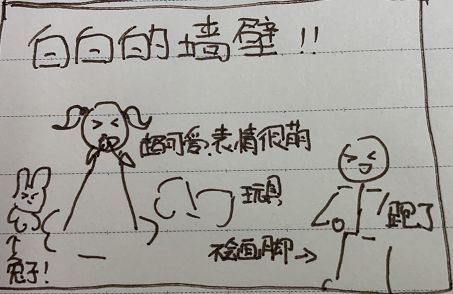 白白的墙壁!!
超可爱,表情很萌
玩具
跑了
不会画脚→
↑
兔子!